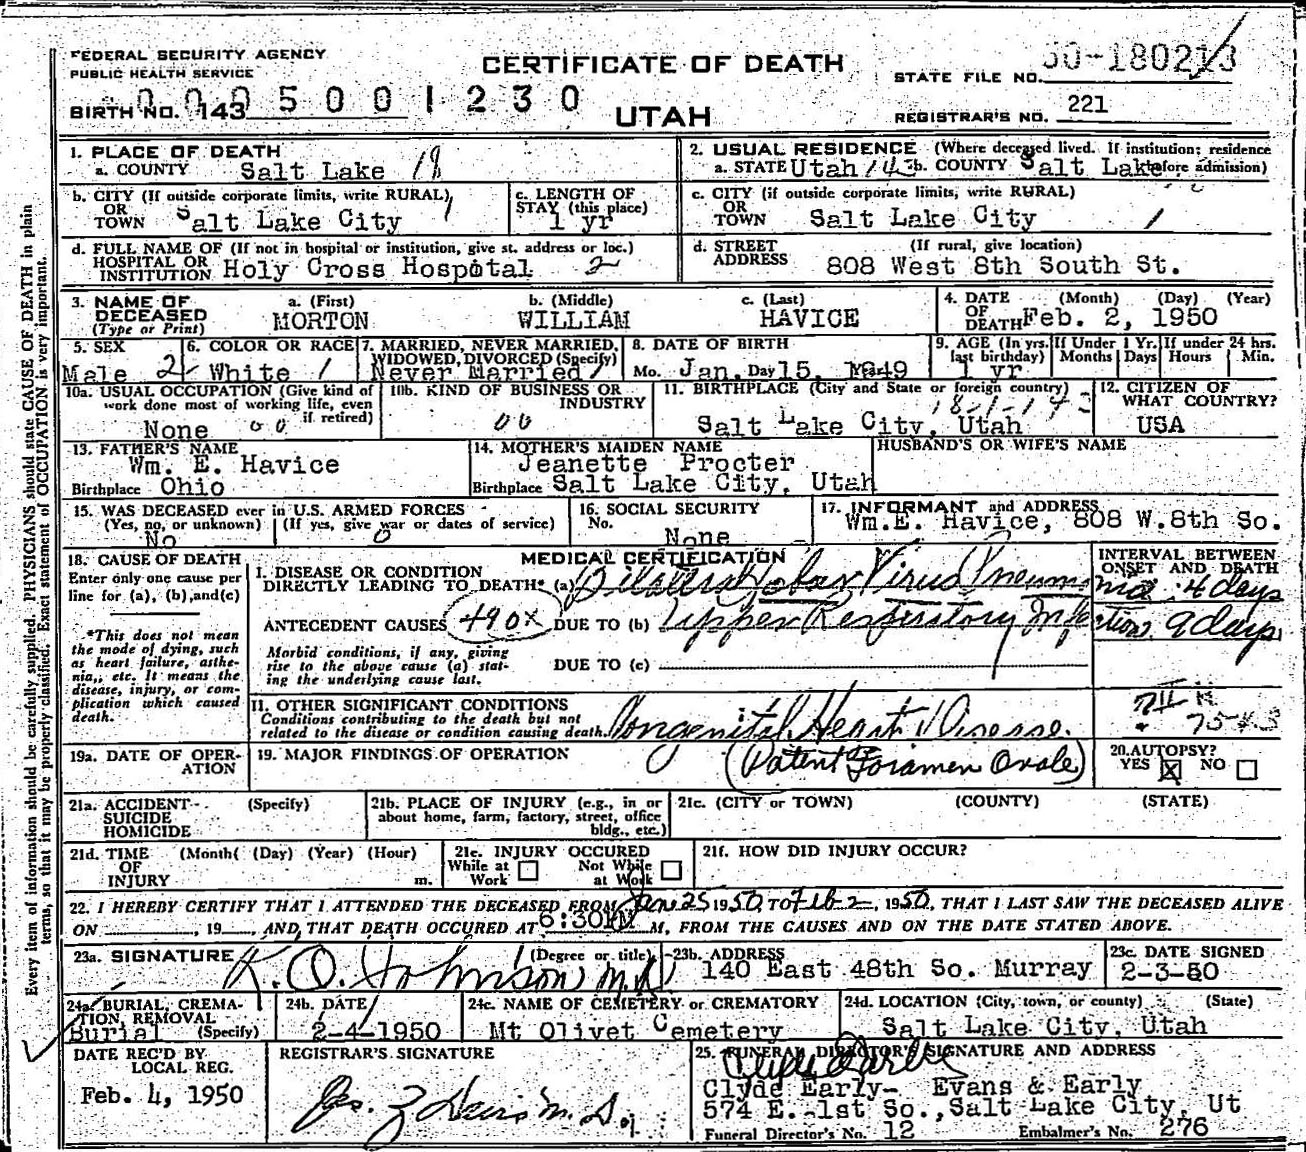 FEDERAL SECURITY AGENCY
PUBLIC HEALTH SERVICE
BIRTH NO. 143
0005001230
CERTIFICATE OF DEATH
UTAH
STATE FILE NO. 50-180213
REGISTRAR'S NO. 221
Every item of information should be carefully supplied. PHYSICIANS should state CAUSE OF DEATH in plain
terms, so that it may be properly classified. Exact statement of OCCUPATION is very important.
1. PLACE OF DEATH
a. COUNTY Salt Lake 18
2. USUAL RESIDENCE (Where deceased lived. If institution; residence
a. STATE Utah 143 b. COUNTY Salt Lake before admission)
b. CITY (If outside corporate limits, write RURAL)
OR
TOWN Salt Lake City 1
c. LENGTH OF
STAY (this place)
1 yr
c. CITY (if outside corporate limits, write RURAL)
OR
TOWN Salt Lake City 1
d. FULL NAME OF (If not in hospital or institution, give st. address or loc.)
HOSPITAL OR
INSTITUTION Holy Cross Hospotal 2
d. STREET (If rural, give location)
ADDRESS 808 West 8th South St.
3. NAME OF DECEASED (Type or Print)
a. (First) b. (Middle) c. (Last)
MORTON WILLIAM HAVICE
4. DATE (Month) (Day) (Year)
OF
DEATH Feb. 2, 1950
5. SEX
Male 2
6. COLOR OR RACE
White 1
7. MARRIED, NEVER MARRIED,
WIDOWED, DIVORCED (Specify)
Never Married 1
8. DATE OF BIRTH
Mo. Jan. Day 15, 1949
9. AGE (In yrs. last birthday) 1 yr
If Under 1 Yr. Months Days
If under 24 hrs. Hours Min.
10a. USUAL OCCUPATION (Give kind of
work done most of working life, even
if retired)
None 00
10b. KIND OF BUSINESS OR
INDUSTRY
00
11. BIRTHPLACE (City and State or foreign country)
18-1-143
Salt Lake City, Utah
12. CITIZEN OF
WHAT COUNTRY?
USA
13. FATHER'S NAME
Wm. E. Havice
Birthplace Ohio
14. MOTHER'S MAIDEN NAME
Jeanette Procter
Birthplace Salt Lake City, Utah
HUSBAND'S OR WIFE'S NAME
15. WAS DECEASED ever in U.S. ARMED FORCES
(Yes, no, or unknown) (If yes, give war or dates of service)
No 0
16. SOCIAL SECURITY
No.
None
17. INFORMANT and ADDRESS
Wm.E. Havice, 808 W.8th So.
18. CAUSE OF DEATH
Enter only one cause per
line for (a), (b), and(c)
*This does not mean
the mode of dying, such
as heart failure, asthe-
nia,, etc. It means the
disease, injury, or com-
plication which caused
death.
MEDICAL CERTIFICATION
I. DISEASE OR CONDITION
DIRECTLY LEADING TO DEATH* (a) Bilateral Lobar Virus Pneumonia
ANTECEDENT CAUSES 490X DUE TO (b) Upper Respiratory Infection
Morbid conditions, if any, giving
rise to the above cause (a) stat-
ing the underlying cause last.
DUE TO (c)
INTERVAL BETWEEN
ONSET AND DEATH
4 days
9 days
11. OTHER SIGNIFICANT CONDITIONS
Conditions contributing to the death but not
related to the disease or condition causing death. Congenital Heart Disease.
(Patent Foramen Ovale)
19a. DATE OF OPER-
ATION
19. MAJOR FINDINGS OF OPERATION
20. AUTOPSY?
YES X NO
21a. ACCIDENT (Specify)
SUICIDE
HOMICIDE
21b. PLACE OF INJURY (e.g., in or
about home, farm, factory, street, office
bldg., etc.)
21c. (CITY or TOWN) (COUNTY) (STATE)
21d. TIME (Month( (Day) (Year) (Hour)
OF
INJURY m.
21e. INJURY OCCURED
While at Work Not While at Work
21f. HOW DID INJURY OCCUR?
22. I HEREBY CERTIFY THAT I ATTENDED THE DECEASED FROM Jan 25 1950, TO Feb 2, 1950, THAT I LAST SAW THE DECEASED ALIVE
ON , 19 , AND THAT DEATH OCCURED AT 6:30PM M, FROM THE CAUSES AND ON THE DATE STATED ABOVE.
23a. SIGNATURE (Degree or title)
K. O. Johnson M.D.
23b. ADDRESS
140 East 48th So. Murray
23c. DATE SIGNED
2-3-50
24a. BURIAL, CREMA-
TION, REMOVAL
Burial (Specify)
24b. DATE
2-4-1950
24c. NAME OF CEMETERY or CREMATORY
Mt Olivet Cemetery
24d. LOCATION (City, town, or county) (State)
Salt Lake City, Utah
DATE REC'D BY
LOCAL REG.
Feb. 4, 1950
REGISTRAR'S SIGNATURE
25. FUNERAL DIRECTOR'S SIGNATURE AND ADDRESS
Clyde Early
Clyde Early- Evans & Early
574 E. 1st So., Salt Lake City, Ut
Funeral Director's No. 12 Embalmer's No. 276